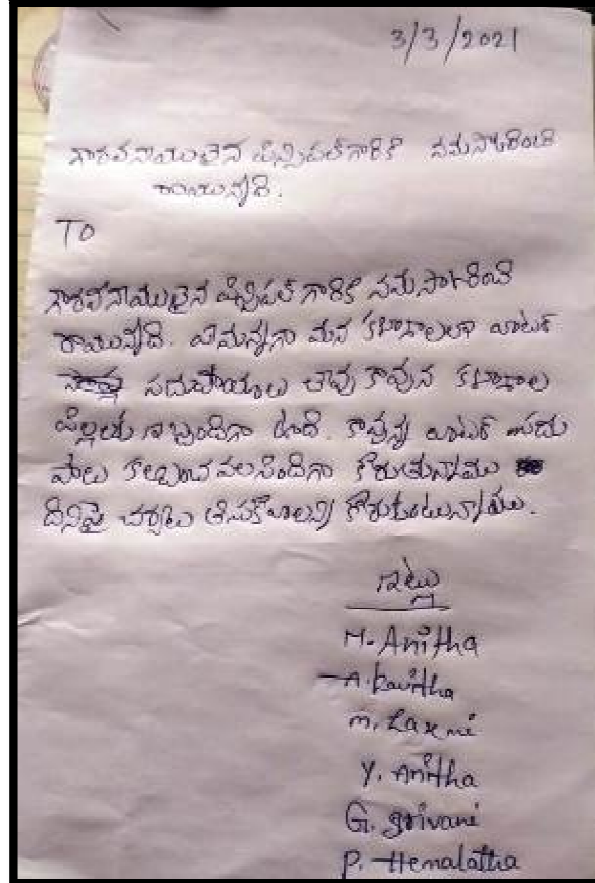 3/3/2021
గౌరవనీయులైన ప్రిన్సిపల్ గారికి నమస్కరించి
రాయునది.
TO
గౌరవనీయులైన ప్రిన్సిపల్ గారికి నమస్కరించి
రాయునది. ఏమనగా మన కళాశాలలో వాటర్
సదుపాయాలు లేవు కావున కళాశాల
పిల్లలకు ఇబ్బందిగా ఉంది. కావున వాటర్ సదు
పాలు కల్పించవలసిందిగా కోరుతున్నాము
దినిపై చర్యలు తీసుకోవాలని కోరుకుంటున్నాము.
ఇట్లు
M. Anitha
A. Kavitha
M. Laxmi
Y. Anitha
G. Srivani
P. Hemalatha